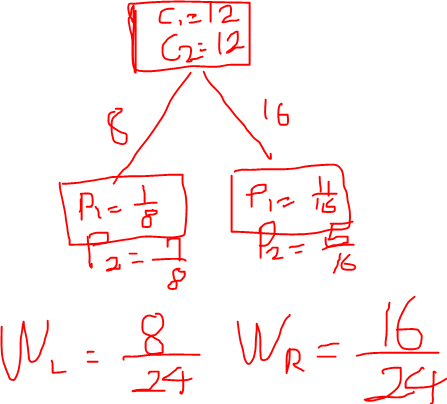 C₁=12
C₂=12
8 16
P₁ = 1/8 P₁ = 11/16
P₂ = 7/8 P₂ = 5/16
W_L = 8/24 W_R = 16/24